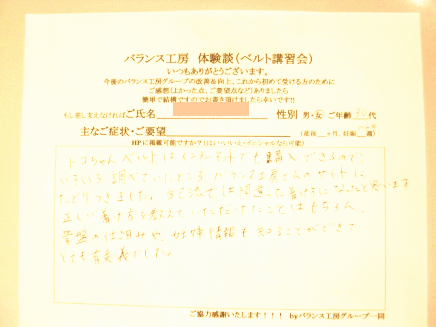 バランス工房 体験談(ベルト講習会)
いつもありがとうございます。
今後のバランス工房グループの改善&向上、これから初めて受ける方のために
ご感想(よかった点、ご要望点など)ありましたら
簡単で結構ですのでお書き頂けましたら幸いです!!
もし差し支えなければご氏名 性別 男・女 ご年齢 代
主なご症状・ご要望 (産後 ヶ月、妊娠 週)
HPに掲載可能ですか?(はい・いいえ・イニシャルなら可能)
トコちゃんベルトはインターネットでも購入できるのに、
いろいろ調べていたところ、バランス工房さんのサイトに
たどりつきました。自己流では間違った着け方になったと思います
正しい着け方を教えていただけたことはもちろん、
骨盤の仕組みや、妊婦情報も知ることができて
とても有意義でした。
ご協力感謝いたします!!! byバランス工房グループ一同